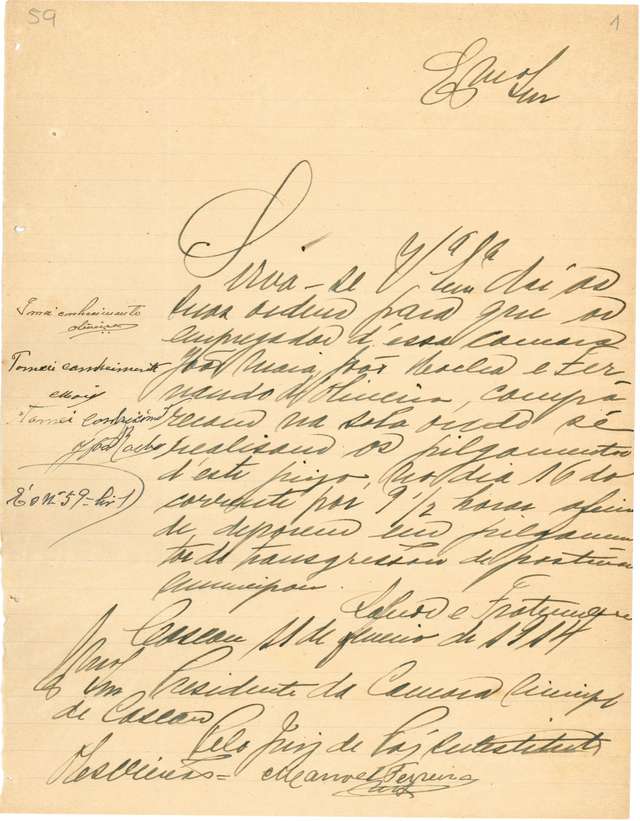 59
1
Exmo
Snr
Sirva-se Vª Sª em dar as
suas ordens para que os
empregados d'essa camara
João Maia, João Rocha e Fer
nando d'Oliveira, compa
reçam na sala onde se
realisam os julgamentos
d'este juizo, no dia 16 do
corrente por 9 1/2 horas afim
de deporem em julgamen
tos de transgressão de posturas
municipaes.
Saude e Fraternidade
Cascaes 11 de de 1914
Exmo
Snr Presidente da Camara
de Cascaes
Pelo Juiz de Paz substituto
Manoel Ferreira
Tomei conhecimento
Oliveira
Tomei conhecimento
Maia
Tomei conhecimento
João Rocha
É o nº 59-